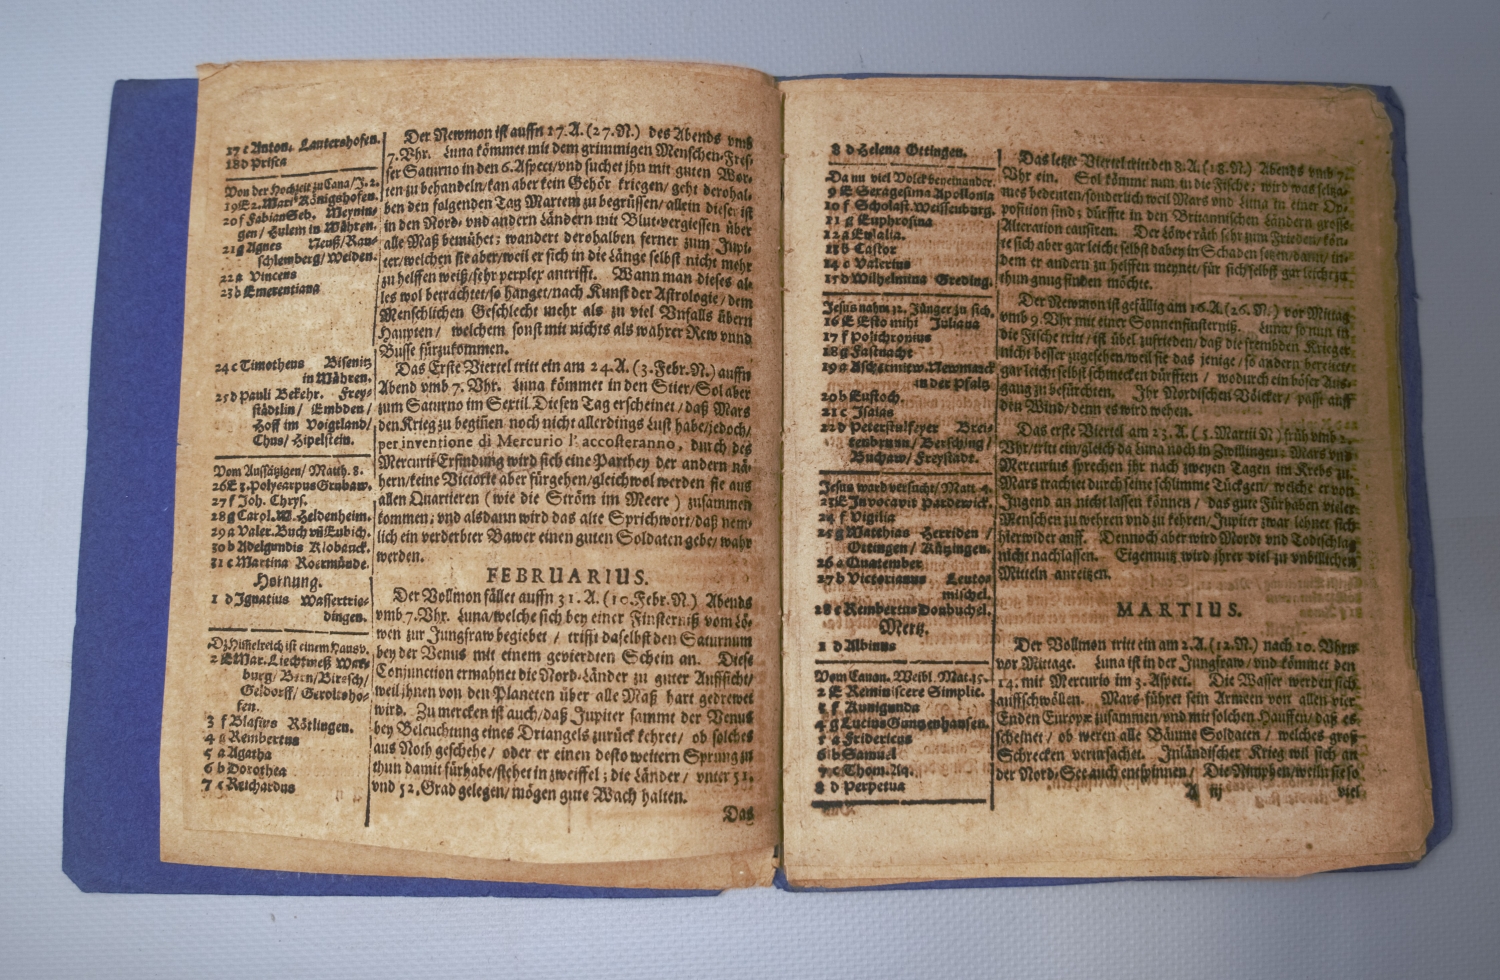 17 c Anton. Lautershofen.
18 d Prisca
Von der Hochzeit zu Cana/J. 2.
19 E 2. Mari Königshofen.
20 f Fabian Seb. Meynin-
gen/ Hulem in Mähren.
21 g Agnes Neuß/Rau-
schemberg/Welden.
22 a Vincens
23 b Emerentiana
24 c Timotheus Bisenitz
in Mähren.
25 d Pauli Bekehr. Frey-
städtlin/ Embden/
Hoff im Voigtland/
Chus/ Hipelstein.
Vom Aussätzigen/ Matth. 8.
26 E 3. Polycarpus Grubaw.
27 f Joh. Chrys.
28 g Carol. M. Heldenheim.
29 a Valer. Buch vñ Eubich.
30 b Adelgundis Klobauck.
31 c Martina Roermünde.
Hornung.
1 d Ignatius Wassertrie-
dingen.
Dz Him̃elreich ist einem Hausv.
2 E Mar. Liechtmeß War-
burg/ Bern/Biresch/
Geldorff/ Geroltzho-
fen.
3 f Blasius Rötlingen.
4 g Rembertus
5 a Agatha
6 b Dorothea
7 c Reichardus
Der Newmon ist auffn 17. A. (27. N.) des Abends vmb
7. Vhr. Luna kömmet mit dem grimmigen Menschen-Fres-
ser Saturno in den 6. Aspect/vnd suchet jhn mit guten Wor-
ten zu behandeln/kan aber kein Gehör kriegen/ geht derohal-
ben den folgenden Tag Martem zu begrüssen/allein dieser ist
in den Nord- vnd andern Ländern mit Blut-vergiessen über
alle Maß bemühet; wandert derohalben ferner zum Jupi-
ter/welchen sie aber/weil er sich in die Länge selbst nicht mehr
zu helffen weiß/sehr perplex antrifft. Wann man dieses al-
les wol betrachtet/so hanget/nach Kunst der Astrologie/dem
Menschlichen Geschlecht mehr als zu viel Vnfalls übern
Haupten/ welchem sonst mit nichts als wahrer Rew vnnd
Busse fürzukommen.
Das Erste Viertel tritt ein am 24. A. (3. Febr. N.) auffn
Abend vmb 7. Vhr. Luna kömmet in den Stier/Sol aber
zum Saturno im Sextil. Diesen Tag erscheinet/daß Mars
den Krieg zu begiñen noch nicht allerdings Lust habe/jedoch/
per inventione di Mercurio l' accosteranno, durch des
Mercurii Erfindung wird sich eine Parthey der andern nä-
hern/keine Victorie aber fürgehen/gleichwol werden sie aus
allen Quartieren (wie die Ström im Meere) zusammen
kommen; vnd alsdann wird das alte Sprichwort/daß nem-
lich ein verderbter Bawer einen guten Soldaten gebe/wahr
werden.
FEBRUARIUS.
Der Vollmon fället auffn 31. A. (10. Febr. N.) Abends
vmb 7. Vhr. Luna/welche sich bey einer Finsterniß vom Lö-
wen zur Jungfraw begiebet/ trifft daselbst den Saturnum
bey der Venus mit einem gevierdten Schein an. Diese
Conjunction ermahnet die Nord-Länder zu guter Auffsicht/
weil jhnen von den Planeten über alle Maß hart gedrewet
wird. Zu mercken ist auch/daß Jupiter sammt der Venus
bey Beleuchtung eines Driangels zurück kehret/ ob solches
aus Noth geschehe/ oder er einen desto weitern Sprung zu
thun damit fürhabe/stehet in zweiffel; die Länder/ vnter 51.
vnd 52. Grad gelegen/mögen gute Wach halten.
Das
8 d Helena Ottingen.
Da nu viel Volck beyeinander.
9 E Sexagesima Apollonia
10 f Scholast. Weissenburg.
11 g Euphrosina
12 a Eulalia.
13 b Castor
14 c Valerius
15 d Wilhelmina Greding.
Jesus nahm 12. Jünger zu sich.
16 E Esto mihi Juliana
17 f Polichronius
18 g Fastnacht
19 a Aschermitw. Newmarck
in der Pfaltz
20 b Eustoch.
21 c Isaias
22 d Peterstulfeyer Brei-
tenbrunn/ Berching/
Buchaw/Freystadt.
Jesus ward versucht/Matt. 4.
23 E Invocavit Parderwick.
24 f Vigilia
25 g Matthias Herriden/
Ottingen/ Kützingen.
26 a Quatember
27 d Victorianus Leuto-
mischel.
28 c Rembertus Donbuchel.
Mertz.
1 d Albinus
Vom Canan. Weibl. Mat. 15.
2 E Reminiscere Simplic.
3 f Kunigunda
4 g Lucius Guntzenhausen.
5 a Fridericus
6 b Samuel
7 c Thom. Aq.
8 d Perpetua
Das letzte Viertel tritt den 8. A. (18. N.) Abends vmb 7.
Vhr ein. Sol kömmt nun in die Fische; wird was seltza-
mes bedeuten/sonderlich weil Mars vnd Luna in einer Op-
position sind; dürffte in den Britannischen Ländern grosse
Alteration causiren. Der Löwe räth sehr zum Frieden/kön-
te sich aber gar leicht selbst dabey in Schaden setzen/dann/ in-
dem er andern zu helffen meynet/für sich selbst gar leicht zu
thun gnug finden möchte.
Der Newmon ist gefällig am 16. A. (26. N.) vor Mittag
vmb 9. Vhr mit einer Sonnenfinsterniß. Luna/ so nun in
die Fische tritt/ist übel zufrieden/daß die frembden Krieger
nicht besser zugesehen/weil sie das jenige/so andern bereitet/
gar leicht selbst schmecken dürfften/ wodurch ein böser Aus-
gang zu befürchten. Ihr Nordischen Völcker/ passt auff
den Wind/denn es wird wehen.
Das erste Viertel am 23. A. (5. Martii N.) früh vmb 2.
Vhr/tritt ein/gleich da Luna noch in Zwillingen: Mars vnd
Mercurius sprechen jhr nach zweyen Tagen im Krebs zu.
Mars trachtet durch seine schlimme Tückgen/ welche er von
Jugend an nicht lassen können/ das gute Fürhaben vieler
Menschen zu wehren vnd zu kehren/Jupiter zwar lehnet sich
hierwider anff. Dennoch aber wird Mordt vnd Todtschlag
nicht nachlassen. Eigennutz wird jhrer viel zu vnbillichen
Mitteln anreitzen.
MARTIUS.
Der Vollmon tritt ein am 2. A. (12. N.) nach 10. Vhrn
vor Mittage. Luna ist in der Jungfraw/vnd kömmet den
14. mit Mercurio im 3. Aspect. Die Wasser werden sich
auffschwöllen. Mars führet sein Armeen von allen vier
Enden Europæ zusammen/vnd mit solchen Hauffen/daß es
scheinet/ ob weren alle Bäume Soldaten/ welches groß
Schrecken verursachet. Inländischer Krieg wil sich an
der Nord-See auch entspinnen/ Die Nimphen/weiln sie so
A iij
viel